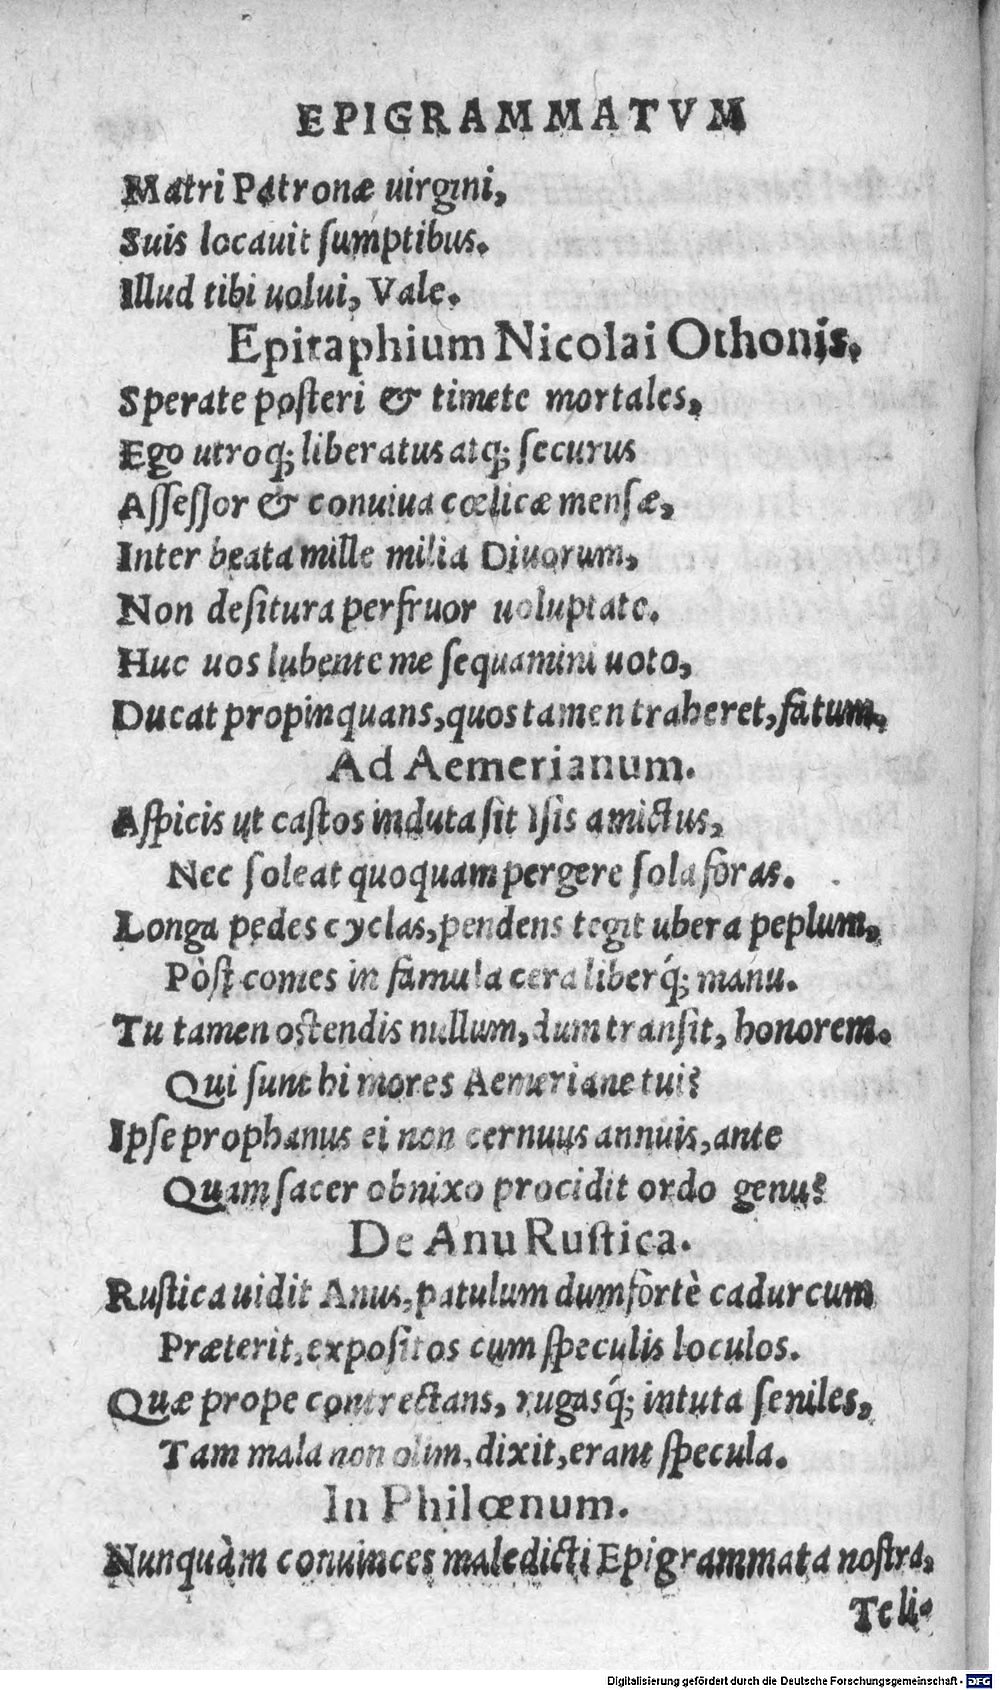 EPIGRAMMATVM
Matri Patronæ uirgini,
Suis locauit ſumptibus.
Illud tibi uolui, Vale.
Epitaphium Nicolai Othonis.
Sperate poſteri & timete mortales,
Ego utroq; liberatus atq; ſecurus
Aſſeſſor & conuiua cœlicæ menſæ,
Inter beata mille milia Diuorum,
Non deſitura perfruor uoluptate.
Huc uos lubente me ſequamini uoto,
Ducat propinquans, quos tamen traheret, fatum.
Ad Aemerianum.
Aſpicis ut caſtos induta ſit Iſis amictus,
Nec ſoleat quoquam pergere ſola foras.
Longa pedes cyclas, pendens tegit ubera peplum,
Pòſt comes in famula cera liberq́; manu.
Tu tamen oſtendis nullum, dum tranſit, honorem.
Qui ſunt hi mores Aemeriane tui?
Ipſe prophanus ei non cernuus annuis, ante
Quam ſacer obnixo procidit ordo genu?
De Anu Ruſtica.
Ruſtica uidit Anus, patulum dum fortè cadurcum
Præterit, expoſitos cum ſpeculis loculos.
Quæ prope contrectans, rugasq́; intuta ſeniles,
Tam mala non olim, dixit, erant ſpecula.
In Philœnum.
Nunquàm conuinces maledicti Epigrammata noſtra,
Teli-
Digitalisierung gefördert durch die Deutsche Forschungsgemeinschaft - DFG